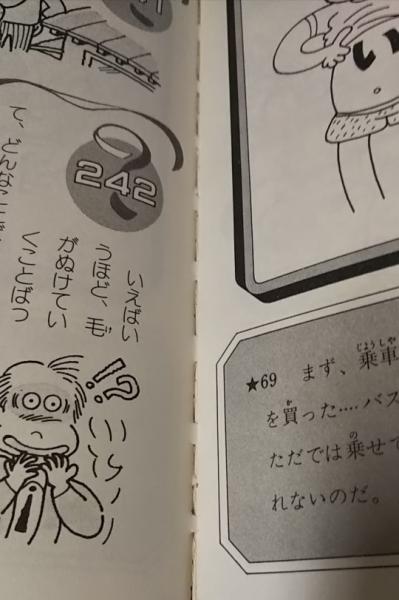 242
いえばい
うほど、毛が
ぬけてい
くことばっ
て、どんなことば
!?
い
★69 まず、乗車
を買った‥‥バス
ただでは乗せて
れないのだ。